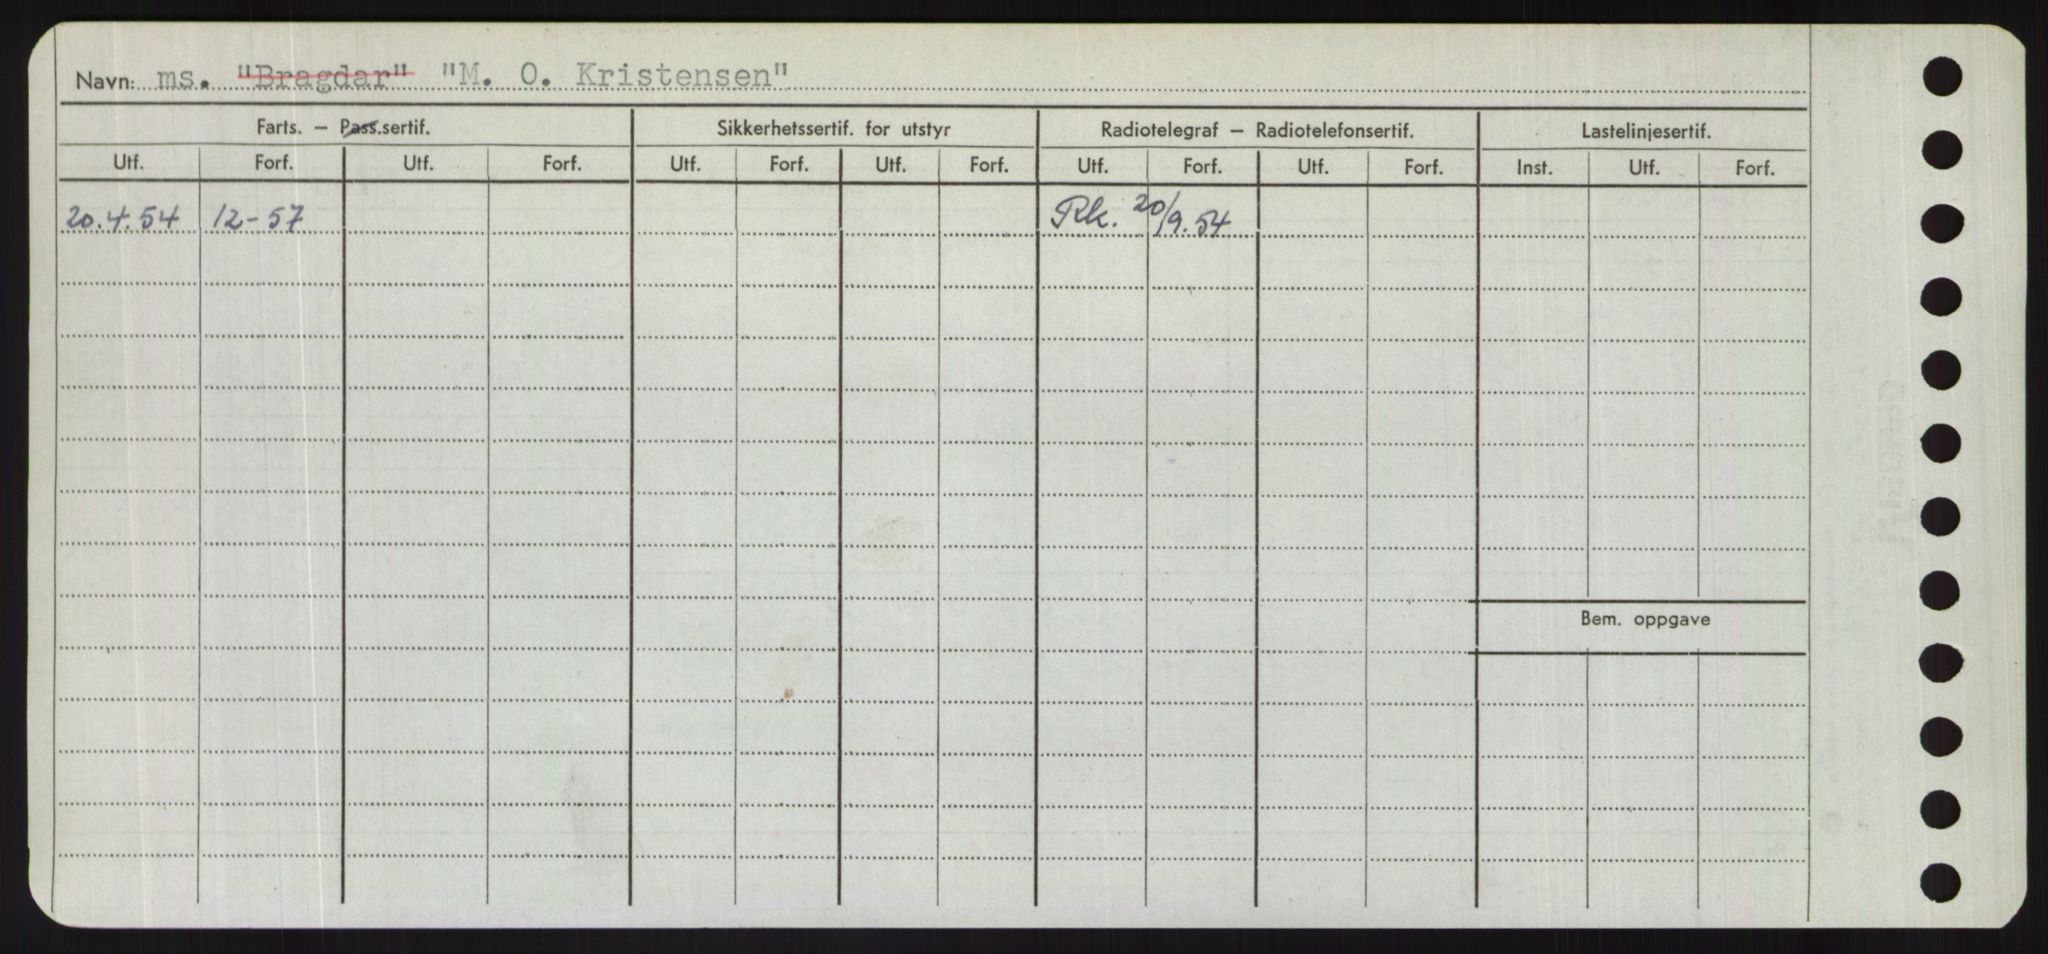 Navn: ms. "Bragdar" "M. O. Kristensen"
Farts. – Pass.sertif. Sikkerhetssertif. for utstyr Radiotelegraf – Radiotelefonsertif. Lastelinjesertif.
Utf. Forf. Utf. Forf. Utf. Forf. Utf. Forf. Utf. Forf. Utf. Forf. Inst. Utf. Forf.
20.4.54 12-57 Rk. 20/9.54
Bem. oppgave